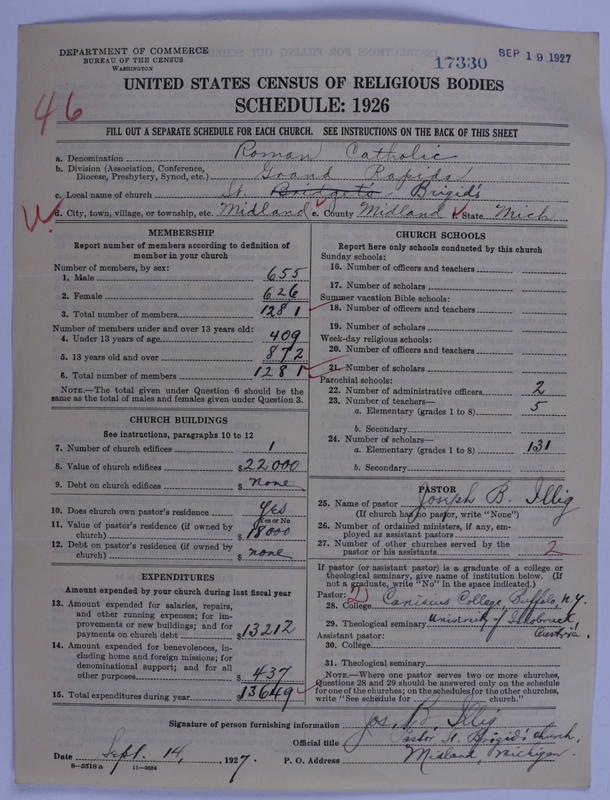 DEPARTMENT OF COMMERCE
BUREAU OF THE CENSUS
WASHINGTON
17330
SEP 19 1927
46
UNITED STATES CENSUS OF RELIGIOUS BODIES
SCHEDULE: 1926
FILL OUT A SEPARATE SCHEDULE FOR EACH CHURCH. SEE INSTRUCTIONS ON THE BACK OF THIS SHEET
a. Denomination Roman Catholic
b. Division (Association, Conference, Diocese, Presbytery, Synod, etc.) Grand Rapids
c. Local name of church St. Bridgets Brigid's
d. City, town, village, or township, etc. Midland e. County Midland State Mich
MEMBERSHIP
Report number of members according to definition of
member in your church
Number of members, by sex:
1. Male 655
2. Female 626
3. Total number of members 1281
Number of members under and over 13 years old:
4. Under 13 years of age 409
5. 13 years old and over 872
6. Total number of members 1281
NOTE.—The total given under Question 6 should be
same as the total of males and females given under Question 3.
CHURCH BUILDINGS
See instructions, paragraphs 10 to 12
7. Number of church edifices 1
8. Value of church edifices $22000
9. Debt on church edifices $ none
10. Does church own pastor's residence yes
Yes or No
11. Value of pastor's residence (if owned by
church) $18000
12. Debt on pastor's residence (if owned by
church) $ none
EXPENDITURES
Amount expended by your church during last fiscal year
13. Amount expended for salaries, repairs,
and other running expenses; for im-
provements or new buildings; and for
payments on church debt $13212
14. Amount expended for benevolences, in-
cluding home and foreign missions; for
denominational support; and for all
other purposes $437
15. Total expenditures during year $13649
CHURCH SCHOOLS
Report here only schools conducted by this church
Sunday schools:
16. Number of officers and teachers
17. Number of scholars
Summer vacation Bible schools:
18. Number of officers and teachers
19. Number of scholars
Week-day religious schools:
20. Number of officers and teachers
21. Number of scholars
Parochial schools:
22. Number of administrative officers 2
23. Number of teachers—
a. Elementary (grades 1 to 8) 5
b. Secondary
24. Number of scholars—
a. Elementary (grades 1 to 8) 131
b. Secondary
PASTOR
25. Name of pastor Joseph B. Illig
(If church has no pastor, write "None")
26. Number of ordained ministers, if any, em-
ployed as assistant pastors
27. Number of other churches served by the
pastor or his assistants 2
If pastor (or assistant pastor) is a graduate of a college or
theological seminary, give name of institution below. (If
not a graduate, write "No" in the space indicated.)
Pastor: 2
28. College Canisius College Buffalo, N.Y.
29. Theological seminary University of Innsbruck
Austria.
Assistant pastor:
30. College
31. Theological seminary
NOTE.—Where one pastor serves two or more churches,
Questions 28 and 29 should be answered only on the schedule
for one of the churches; on the schedules for the other churches,
write "See schedule for church."
Signature of person furnishing information Jos. B. Illig
Official title Pastor St. Brigid's Church.
Date Sept. 14, 1927. P. O. Address Midland, Michigan.
8-5518a 11-9684